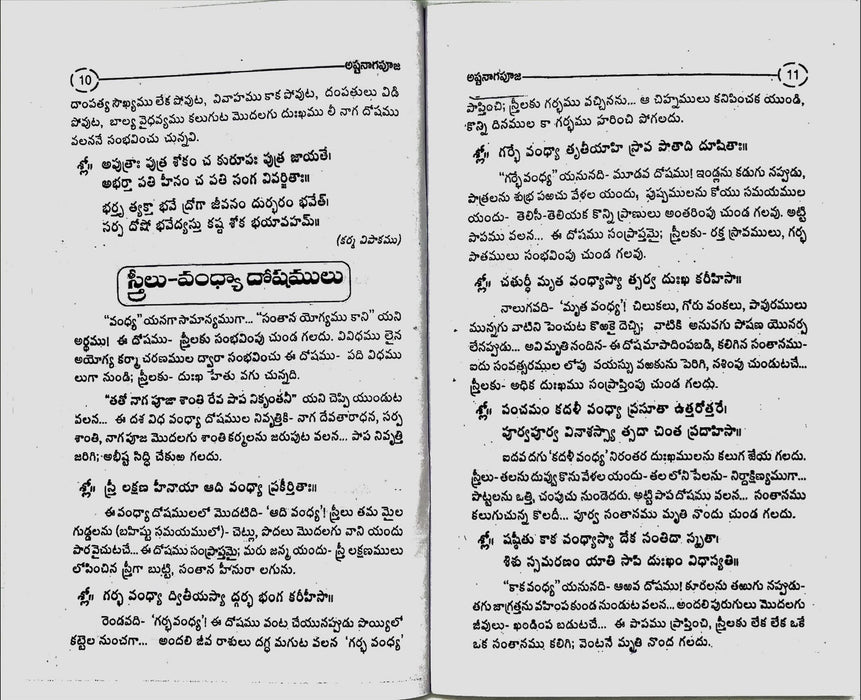 10 అష్టనాగపూజ
దాంపత్య సౌఖ్యము లేక పోవుట, వివాహము కాక పోవుట, దంపతులు విడి
పోవుట, బాల్య వైధవ్యము కలుగుట మొదలగు దుఃఖము లీ నాగ దోషము
వలననే సంభవించు చున్నవి.
శ్లో॥ అపుత్రాః పుత్ర శోకం చ కురూపః పుత్ర జాయతే।
అభర్తా పతి హీనం చ పతి సంగ వివర్జితాః॥
భర్తృ త్యక్తా భవే ద్రోగా జీవనం దుర్భరం భవేత్।
సర్ప దోషో భవేద్యస్తు కష్ట శోక భయావహమ్॥
(కర్మ విపాకము)
స్త్రీలు-వంధ్యా దోషములు
"వంధ్య" యనగా సామాన్యముగా... "సంతాన యోగ్యము కాని" యని
అర్థము। ఈ దోషము- స్త్రీలకు సంభవిపు చుండ గలదు. వివిధము లైన
అయోగ్య కర్మా చరణముల ద్వారా సంభవించు ఈ దోషము- పది విధము
లుగా నుండి; స్త్రీలకు- దుఃఖ హేతు వగు చున్నది.
"తతో నాగ పూజా శాంతి రేవ పాప నికృంతనీ" యని చెప్పి యుండుట
వలన... ఈ దశ విధ వంధ్యా దోషముల నివృత్తికి- నాగ దేవతారాధన, సర్ప
శాంతి, నాగపూజ మొదలగు శాంతి కర్మలను జరుపుట వలన... పాప నివృత్తి
జరిగి; అభీష్ట సిద్ధి చేకుఱ గలదు.
శ్లో॥ స్త్రీ లక్షణ హీనాయా ఆది వంధ్యా ప్రకీర్తితాః॥
ఈ వంధ్యా దోషములలో మొదటిది- 'ఆది వంధ్య'! స్త్రీలు తమ మైల
గుడ్డలను (బహిష్టు సమయములో)- చెట్లు, పొదలు మొదలగు వాని యందు
పారవైచుటచే... ఈ దోషము సంప్రాప్తమై; మరు జన్మ యందు- స్త్రీ లక్షణములు
లోపించిన స్త్రీగా బుట్టి, సంతాన హీనురా లగును.
శ్లో॥ గర్భ వంధ్యా ద్వితీయస్యా ద్గర్భ భంగ కరీహిసా॥
రెండవది- 'గర్భవంధ్య'! ఈ దోషము వంట చేయునప్పుడు పొయ్యిలో
కట్టెల నుంచగా... అందలి జీవ రాశులు దగ్ధ మగుట వలన 'గర్భ వంధ్య'
అష్టనాగపూజ 11
ప్రాప్తించి; స్త్రీలకు గర్భము వచ్చినను... ఆ చిహ్నములు కనిపించక యుండి,
కొన్ని దినముల కా గర్భము హరించి పోగలదు.
శ్లో॥ గర్భే వంధ్యా తృతీయాహి స్రావ పాతాది దూషితాః॥
"గర్భేవంధ్య" యనునది- మూడవ దోషము! ఇండ్లను కడుగు నప్పుడు,
పాత్రలను శుభ్ర పఱచు వేళల యందు, పుష్పములను కోయు సమయముల
యందు- తెలిసీ-తెలియక కొన్ని ప్రాణులు అంతరింపు చుండ గలవు. అట్టి
పాపము వలన... ఈ దోషము సంప్రాప్తమై; స్త్రీలకు- రక్త స్రావములు, గర్భ
పాతములు సంభవిపు చుండ గలవు.
శ్లో॥ చతుర్థీ మృత వంధ్యాస్యా త్సర్వ దుఃఖ కరీహిసా॥
నాలుగవది- 'మృత వంధ్య'! చిలుకలు, గోరు వంకలు, పావురములు
మున్నగు వాటిని పెంచుట కొఱకై దెచ్చి; వాటికి అనువగు పోషణ యొనర్ప
లేనప్పుడు... అవి మృతి నందిన- ఈ దోషమాపాదింపబడి, కలిగిన సంతానము-
ఐదు సంవత్సరముల లోపు వయస్సు వఱకును పెరిగి, నశింపు చుండుటచే...
స్త్రీలకు- అధిక దుఃఖము సంప్రాప్తింపు చుండ గలదు.
శ్లో॥ పంచమం కదళీ వంధ్యా ప్రసూతా ఉత్తరోత్తరే।
పూర్వపూర్వ వినాశస్స్యా త్సదా చింత ప్రదాహిసా॥
ఐదవ దగు 'కదళీ వంధ్య' నిరంతర దుఃఖములను కలుగ జేయ గలదు.
స్త్రీలు- తలను దువ్వు కొను వేళల యందు- తల లోని పేలను- నిర్దాక్షిణ్యముగా...
పొట్టలను ఒత్తి, చంపుచు నుండెదరు. అట్టి పాప దోషము వలన... సంతానము
కలుగుచున్న కొలదీ... పూర్వ సంతానము మృతి నొందు చుండ గలదు.
శ్లో॥ షష్ఠీతు కాక వంధ్యాస్యా దేక సంతిదా స్మృతా।
శిశు స్సమరణం యాతి సాపి దుఃఖం విధాస్యతి॥
"కాకవంధ్య" యనునది- ఆఱవ దోషము! కూరలను తఱుగు నప్పుడు-
తగు జాగ్రత్తను వహింపకుండ నుండుట వలన... అందలి పురుగులు మొదలగు
జీవులు- ఖండింప బడుటచే... ఈ పాపము ప్రాప్తించి, స్త్రీలకు లేక లేక ఒకే
ఒక సంతానము కలిగి; వెంటనే మృతి నొంద గలదు.